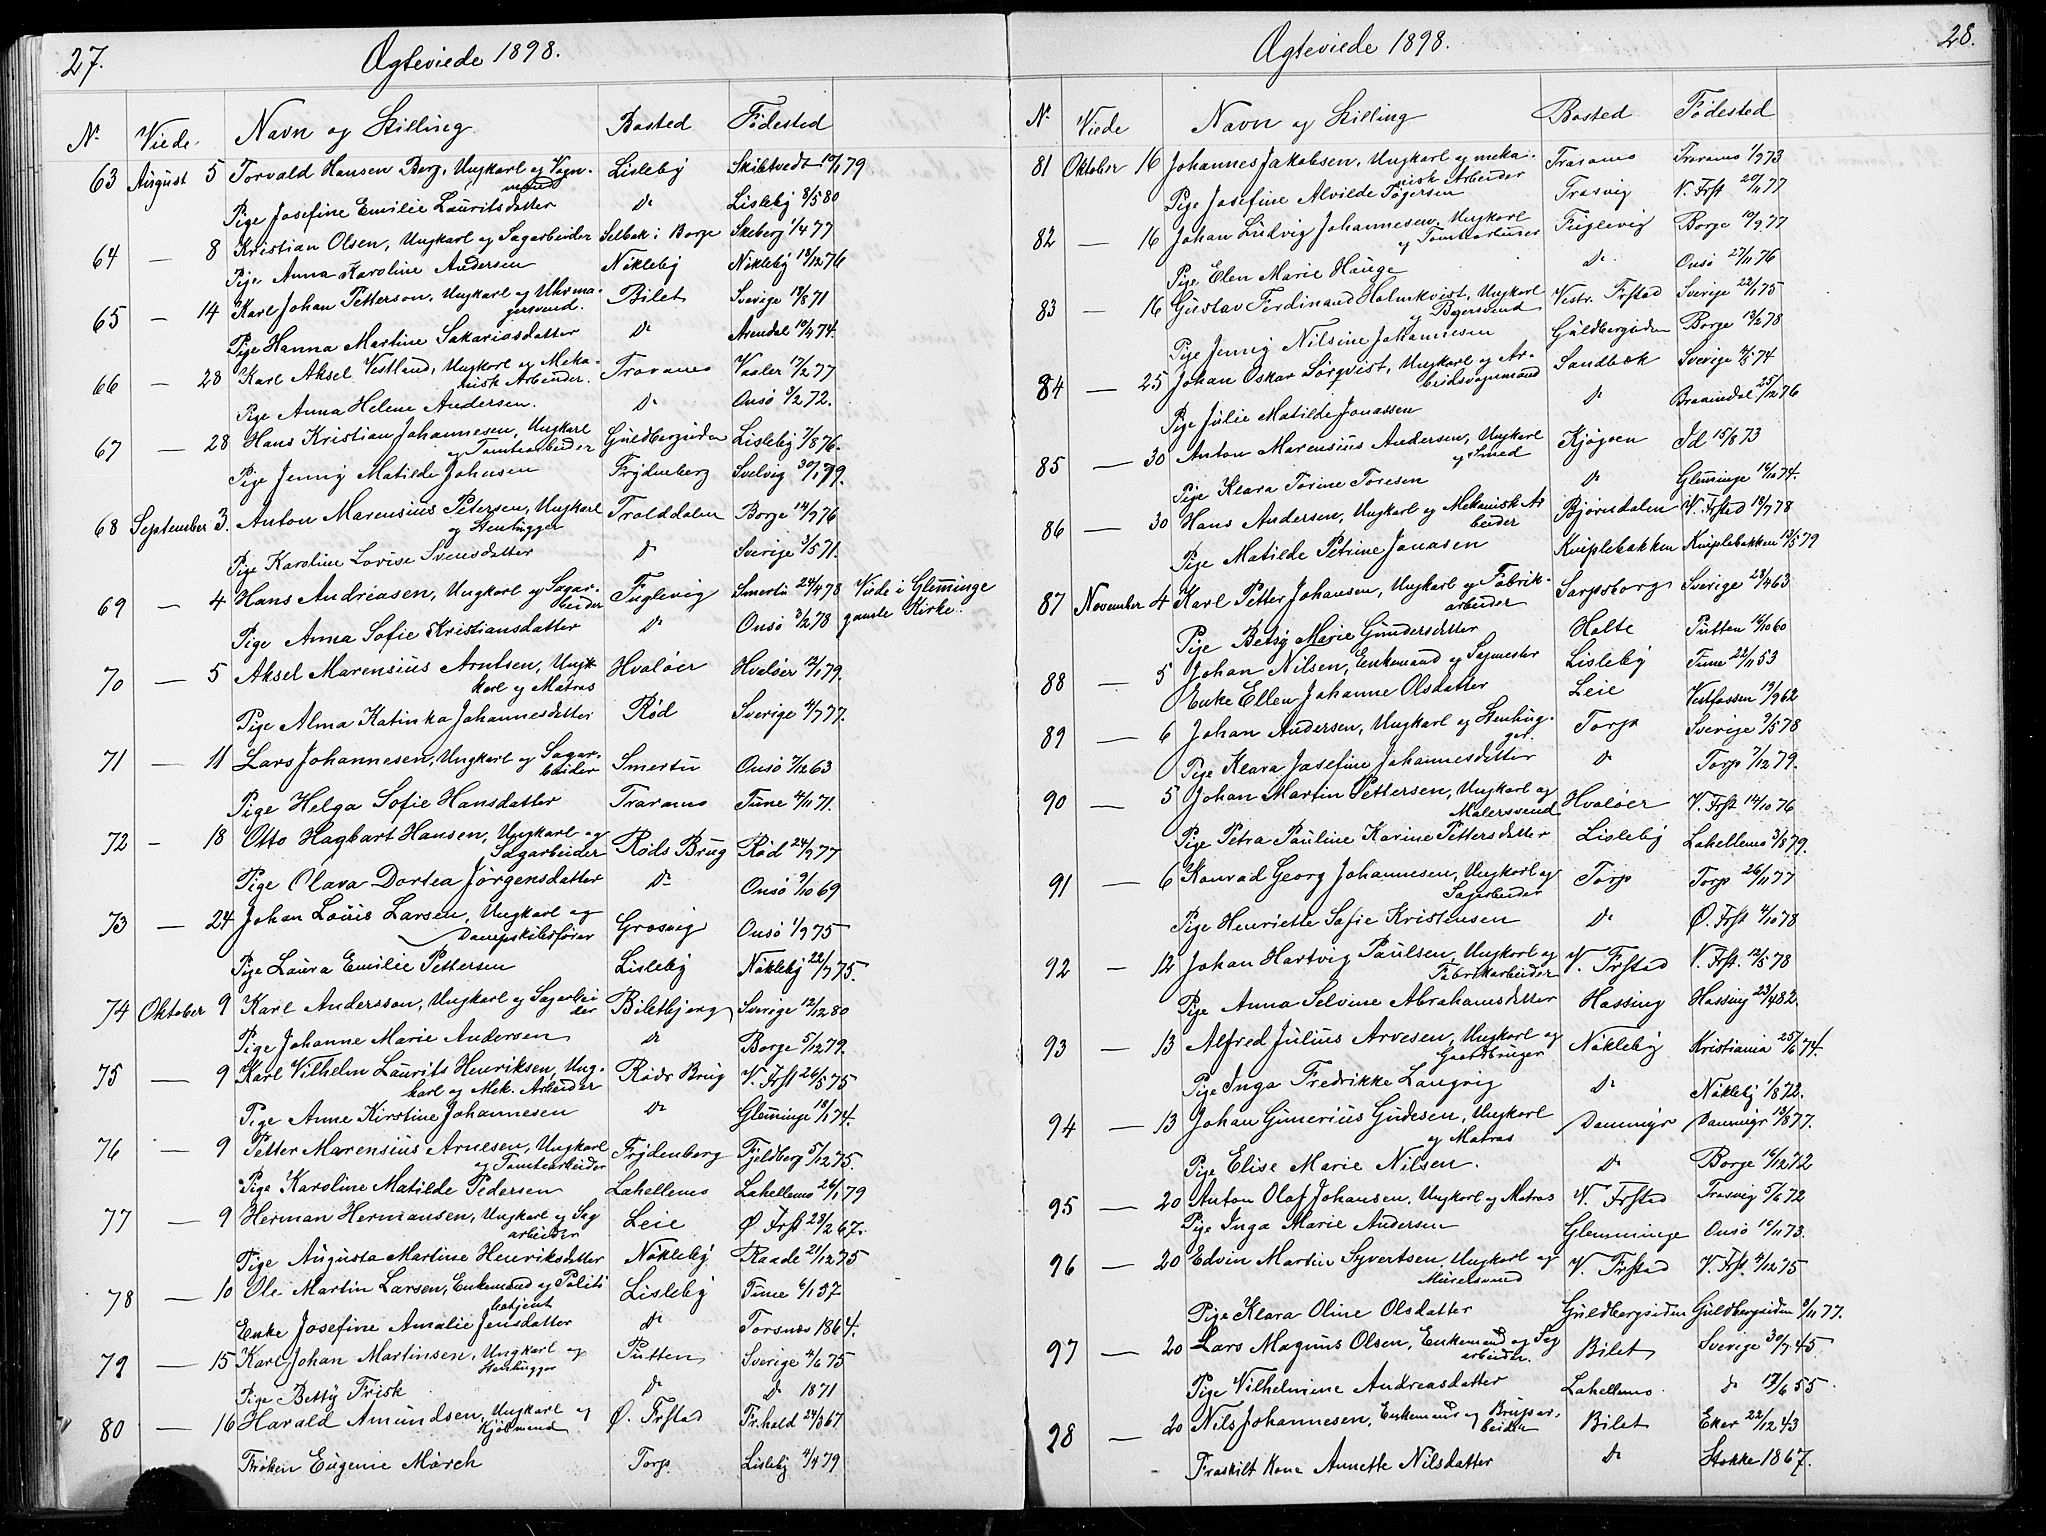 27.
Ægteviede 1898.
No Viede. Navn og Stilling Bosted Fødested
63 August 5 Torvald Hansen Berg, Ungkarl og Vogn- Lisleby Skibtvedt 79
mand
Pige Josefine Emilie Lauritsdatter Do Lisleby 8/5 80
64 — 8 Kristian Olsen, Ungkarl og Sagarbeider Selbak i Borge Skeberg 1/4 77
Pige Anna Karoline Andersen Nökleby Nökleby 13/12 76
65 — 14 Karl Johan Petterson, Ungkarl og Uhrma- Bilet Sverige 71
gersvend.
Pige Hanna Martine Sakariasdatter Do Arendal 74.
66 — 28 Karl Aksel Vestlund, Ungkarl og Meka- Traranes Vaaler 17/2 77
nisk Arbeider.
Pige Anna Helene Andersen. Do Onsö 3/2 72.
67 — 28 Hans Kristian Johannesen, Ungkarl Guldbergsiden Lisleby 7/8 76.
og Tomtearbeider
Pige Jenny Matilde Johnsen Frydenberg Svelvig 79.
68 September 3. Anton Marensius Petersen, Ungkarl Tralddalen Borge 14/7 76
og Stenhugger
Pige Karoline Lovise Svensdatter Do Sverige 3/5 71.
69 — 4 Hans Andreasen, Ungkarl og Sagar- Fuglevig Smertu 24/4 78 Viede i Glemminge
beider gamle Kirke.
Pige Anna Sofie Kristiansdatter Do Onsö 3/2 78
70 — 5 Aksel Marensius Arntsen, Ung- Hvalöer Hvalöer 12/1 79.
karl og Matros
Pige Alma Katinka Johannesdatter Rød Sverige 4/7 77.
71 — 11 Lars Johannesen, Ungkarl og Sagar- Smertu Onsö 7/12 63
beider
Pige Helga Sofie Hansdatter Traranes Tune 4/11 71.
72 — 18 Otto Hagbart Hansen, Ungkarl og Røds Brug Rød 24/9 77
Sagarbeider
Pige Olava Dortea Jörgensdatter Do Onsö 9/10 69
73 — 24 Johan Louis Larsen, Ungkarl og Grosvig Onsö 1/9 75
Dampskibsfører
Pige Laura Emilie Pettersen Lisleby Nökleby 22/7 75.
74 Oktober 9 Karl Andersson, Ungkarl og Sagarbei- Biletbjerg Sverige 12/12 80
der
Pige Johanne Marie Andersen Do Borge 5/12 79.
75 — 9 Karl Vilhelm Laurits Henriksen, Ung- Røds Brug V. Frst 26/5 75
karl og Mek. Arbeider
Pige Anne Kirstine Johannesen Do Glemminge 18/1 74.
76 — 9 Petter Marensius Arnesen, Ungkarl Frydenberg Fjeldberg 5/12 75.
og Tomtearbeider
Pige Karoline Matilde Pedersen Lahellemo Lahellemo 26/1 79
77 — 9 Herman Hermansen, Ungkarl og Sag Leie Ø Frst 23/2 67.
arbeider
Pige Augusta Martine Henriksdatter Nökleby Raade 21/12 75
78 — 10 Ole Martin Larsen, Enkemand og Politi Lisleby Tune 6/1 37
betjent
Enke Josefine Amalie Jensdatter Do Torsnes 1864.
79 — 15 Karl Johan Martinsen, Ungkarl og Putten Sverige 4/6 75
Stenhugger
Pige Betty Frisk Do Do 1871
80 — 16 Harald Amundsen, Ungkarl og Ø. Frstad Fr.hald 24/3 67
Kjöbmand
Frøken Eugenie Mörch Torp. Lisleby 4/4 79
28.
Ægteviede 1898.
No Viede Navn og Stilling Bosted Fødested
81 Oktober 16 Johannes Jakobsen, Ungkarl og meka- Traranes Traranes 1/9 73
nisk Arbeider
Pige Josefine Alvilde Tögersen Trosvig V. Frst 20/11 77
82 — 16 Johan Ludvig Johannesen, Ungkarl Fuglevig Borge 10/9 77
og Tomtearbeider
Pige Elen Marie Hauge Do Onsö 27/11 76
83 — 16 Gustav Ferdinand Holmkvist, Ungkarl Vestr. Frstad Sverige 22/1 75
og Bagersvend
Pige Jenny Nilsine Johannesen Guldbergsiden Borge 13/2 78
84 — 25 Johan Oskar Sörqvist, Ungkarl og Ar- Sandbæk Sverige 74
beidsvognmand
Pige Julie Matilde Jonassen Do 25/12 76
85 — 30 Anton Marensius Andersen, Ungkarl Kjøgoen Id 15/8 73
og Smed
Pige Klara Torine Toresen Do Glemminge 16/10 74.
86 — 30 Hans Andersen, Ungkarl og Mekanisk Ar Bjørndalen V. Frsted 18/7 78
beider
Pige Matilde Petrine Jonasen Kniplebakken Kniplebakken 12/5 79
87 November 4 Karl Petter Johansen, Ungkarl og Fabrik- Sarpsborg Sverige 23/4 63
arbeider
Pige Betsy Marie Gundersdatter Holte Putten 16/10 60
88 — 5 Johan Nilsen, Enkemand og Sagmester Lisleby Tune 22/11 53
Enke Ellen Johanne Olsdatter Leie Vestfossen 19/9 62
89 — 6 Johan Andersen, Ungkarl og Stenhug- Torp Sverige 9/5 78
ger.
Pige Klara Josefine Johannesdatter Do Torp 7/12 79.
90 — 5 Johan Martin Pettersen, Ungkarl og Hvaløer V. Frst 14/10 76
Malersvend
Pige Petra Pauline Karine Pettersdatter Lisleby Lahellemo 3/8 79.
91 — 6 Konrad Georg Johannesen, Ungkarl og Torp Torp 26/11 77
Sagarbeider
Pige Henriette Sofie Kristensen Do Ø. Frst 4/10 78
92 — 12 Johan Hartvig Paulsen, Ungkarl og V. Frstad V. Frst. 12/5 78
Fabrikarbeider
Pige Anna Selvine Abrahamsdatter Hassing Hassing 23/4 82.
93 — 13 Alfred Julius Arvesen, Ungkarl og Nökleby Kristiania 25/6 74.
Gaardbruger
Pige Inga Fredrikke Langvig Do Nökleby 1/8 72.
94 — 13 Johan Gunerius Gudesen, Ungkarl Dammyr Dammyr 13/8 77.
og Matros
Pige Elise Marie Nilsen. Do Borge 16/12 72
95 — 20 Anton Olaf Johansen, Ungkarl og Matros V. Frstad Trosvig 5/6 72
Pige Inga Marie Andersen Glemminge Onsö 10/11 73.
96 — 20 Edvin Martin Syvertsen, Ungkarl og V. Frstad V. Frst. 4/12 75
Murersvend
Pige Klara Oline Olsdatter Guldbergsiden Guldbergsiden 9/11 77.
97 — 20 Lars Magnus Olsen, Enkemand og Sag Bilet Sverige 30/7 45.
arbeider.
Pige Vilhelmine Andreasdatter Lahellemo. Do 17/6 55
98 — 20 Nils Johannesen, Enkemand og Brugsar- Bilet Eker 22/12 43
beider
Fraskilt Kone Annette Nilsdatter Do Stokke 1867.